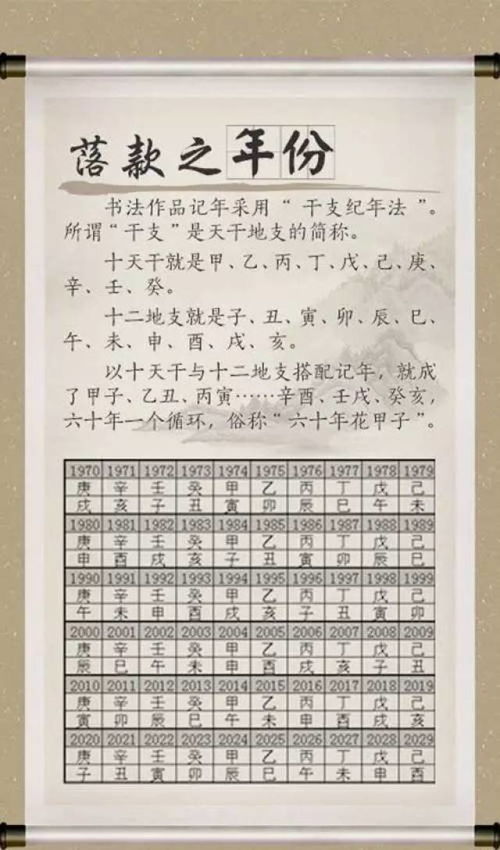 落款之年份
书法作品记年采用“干支纪年法”。
所谓“干支”是天干地支的简称。
十天干就是甲、乙、丙、丁、戊、己、庚、
辛、壬、癸。
十二地支就是子、丑、寅、卯、辰、巳、
午、未、申、酉、戌、亥。
以十天干与十二地支搭配记年，就成
了甲子、乙丑、丙寅……辛酉、壬戌、癸亥，
六十年一个循环，俗称“六十年花甲子”。
1970 1971 1972 1973 1974 1975 1976 1977 1978 1979
庚 辛 壬 癸 甲 乙 丙 丁 戊 己
戌 亥 子 丑 寅 卯 辰 巳 午 未
1980 1981 1982 1983 1984 1985 1986 1987 1988 1989
庚 辛 壬 癸 甲 乙 丙 丁 戊 己
申 酉 戌 亥 子 丑 寅 卯 辰 巳
1990 1991 1992 1993 1994 1995 1996 1997 1998 1999
庚 辛 壬 癸 甲 乙 丙 丁 戊 己
午 未 申 酉 戌 亥 子 丑 寅 卯
2000 2001 2002 2003 2004 2005 2006 2007 2008 2009
庚 辛 壬 癸 甲 乙 丙 丁 戊 己
辰 巳 午 未 申 酉 戌 亥 子 丑
2010 2011 2012 2013 2014 2015 2016 2017 2018 2019
庚 辛 壬 癸 甲 乙 丙 丁 戊 己
寅 卯 辰 巳 午 未 申 酉 戌 亥
2020 2021 2022 2023 2024 2025 2026 2027 2028 2029
庚 辛 壬 癸 甲 乙 丙 丁 戊 己
子 丑 寅 卯 辰 巳 午 未 申 酉